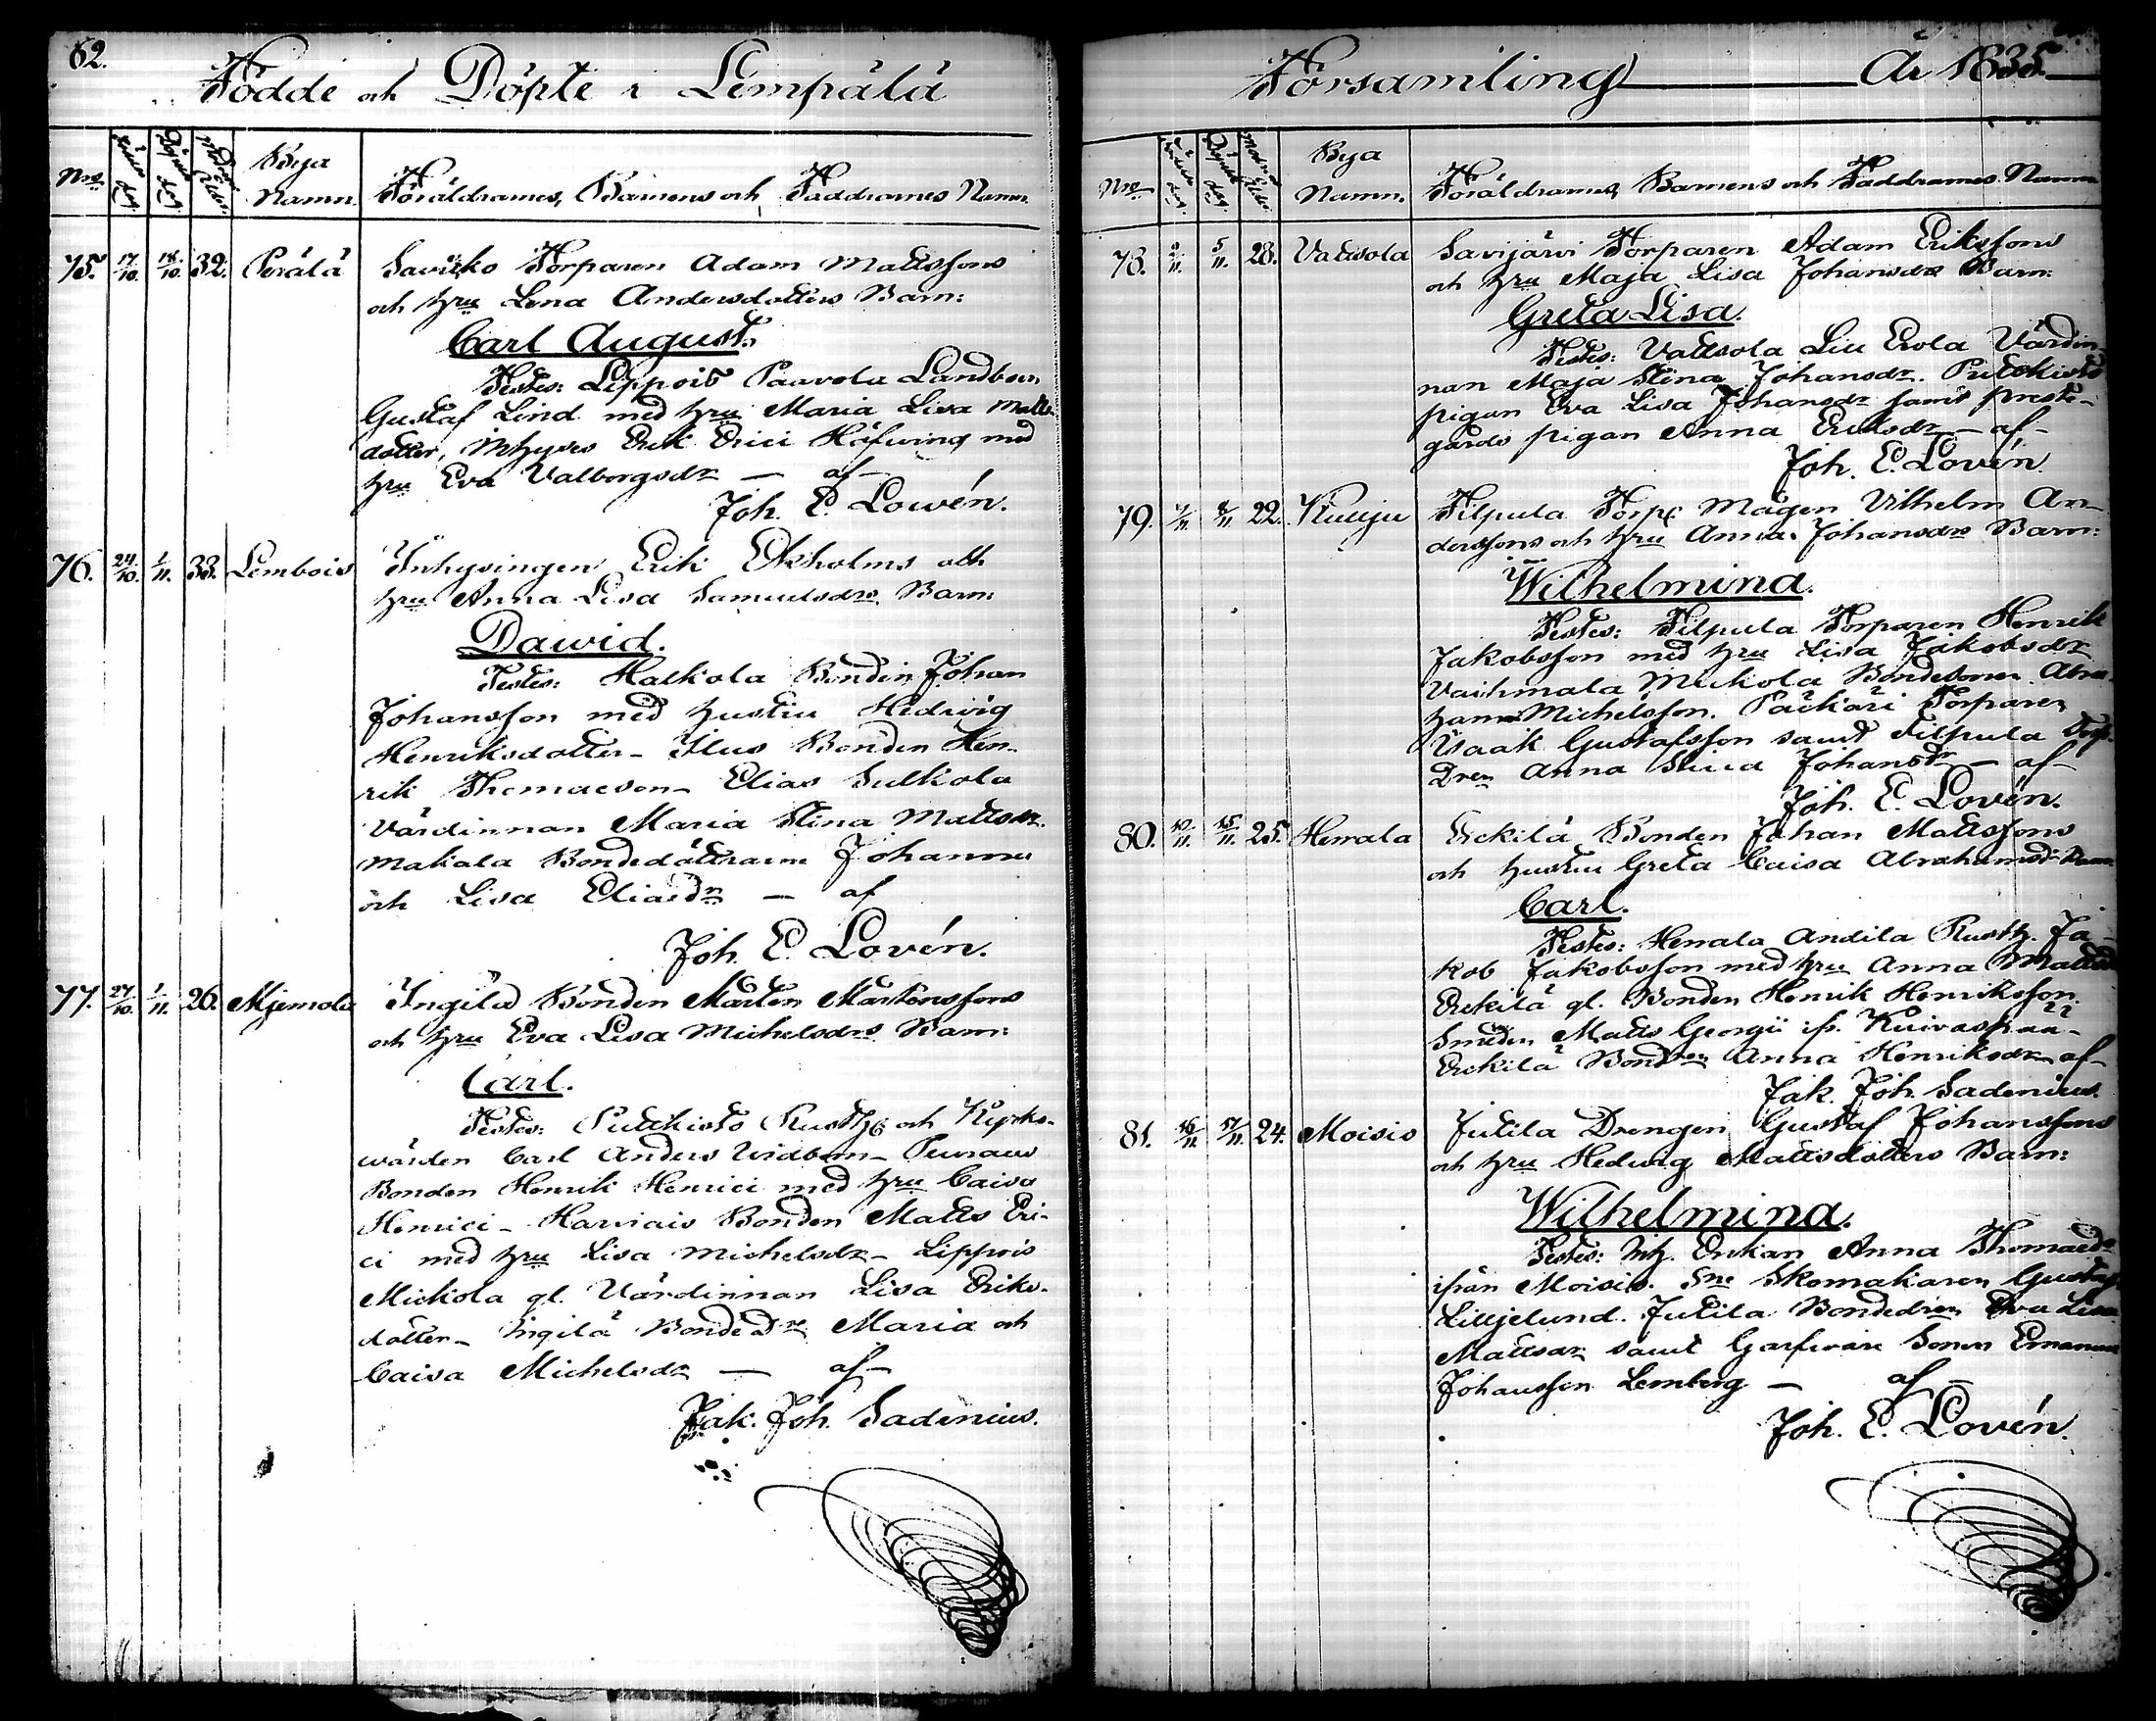 62.
Födde och Döpte i Lempälä
Nro
Födelse dag.
Döpelse dag.
Modrens Ålder.
Bya Namn.
Föräldrarnes, Barnens och Faddrarnes Namn.
75. 17/10. 18/10. 32. Perälä Savikko Torparen Adam Mattssons
och hru Lena Andersdotters Barn:
Carl August.
Testes: Lippois Paavola Landbon
Gustaf Lind med hru Maria Lisa Matts-
dotter, Inhyses Erik Erici Höfving med
hru Eva Valborgsdr — af —
Joh. E. Lowén.
76. 24/10. 1/11. 33. Lembois Inhysingen Erik Ekholms och
hru Anna Lisa Samuelsdrs Barn:
Dawid.
Testes: Halkola Bonden Johan
Johansson med hustru Hedwig
Henriksdotter – Ilus Bonden Hen-
rik Thomaeson – Elias Sulkola
Värdinnan Maria Stina Mattsdr.
Makala Bondedöttrarne Johanna
och Lisa Eliaedr — af
Joh. E. Lovén.
77. 27/10. 1/11. 26. Mjemola Ingilä Bonden Mårten Mårtenssons
och hru Eva Lisa Michelsdrs Barn:
Carl.
Testes: Putkisto Rusth. och Kyrko-
wärden Carl Anders Widbom –
Bonden Henrik Henrici med hru Caisa
Henrici – Harviais Bonden Matts Eri-
ci med hru Lisa Michelsdr – Lippois
Mickola gl. Värdinnan Lisa Eriks-
dotter – Ingilä Bonde Dre Maria och
Caisa Michelsdr — af —
Jak. Joh. Sadenius.
Församling År 1835.
Nro
Födelse dag.
Döpelse dag.
Modrens Ålder
Bya Namn.
Föräldrarnes, Barnens och Faddrarnes Namn
78. 2/11. 5/11. 28. Vattsola Savijärvi Torparen Adam Erikssons
och hru Maja Lisa Johansdrs Barn:
Greta Lisa.
Testes: Vattsola Erola Värdin-
nan Maja Stina Johansdr. Putkisto
pigan Eva Lisa Johansdr samt preste-
gårds pigan Anna Eriksdr — af —
Joh. E. Lovén.
79. 7/11 8/11 22. Kuuju Filpula Torp. Mågen Vilhelm An-
derssons och hru Anna Johansdrs Barn:
Wilhelmina.
Testes: Filpula Torparen Henrik
Jakobsson med hru Lisa Jakobsdr
Vaihmala Mickola Bondesonen Abra-
ham Michelsson. Päckäri Torparen
Isaak Gustafsson samt Filpula Torp.
Dren Anna Johansdr — af —
Joh. E. Lovén.
80. 10/11. 15/11. 25. Herrala Erckilä Bonden Johan Mattssons
och hustru Greta Caisa Abrahamsdrs Barn
Carl.
Testes: Herrala Andila Rusth. Ja-
kob Jakobsson med hru Anna Mattsdr
Erckilä gl. Bonden Henrik Henriksson.
Smeden Matts Georgii ifr. Kuivaspää –
Erckilä Bonddren Anna Henriksdr af —
Jak. Joh. Sadenius.
81. 16/11 17/11. 24. Moisio Jutila Drengen Gustaf Johanssons
och hru Hedwig Mattsdotters Barn:
Wilhelmina.
Testes: Inh. Enkan Anna Thomaedr
ifrån Moisio. Sne Skomakaren Gustaf
Lilljelund. Jutila Bondedren Eva Lisa
Mattsdr samt Garfvare Sonen Emanuel
Johansson Lemberg — af
Joh. E. Lovén.